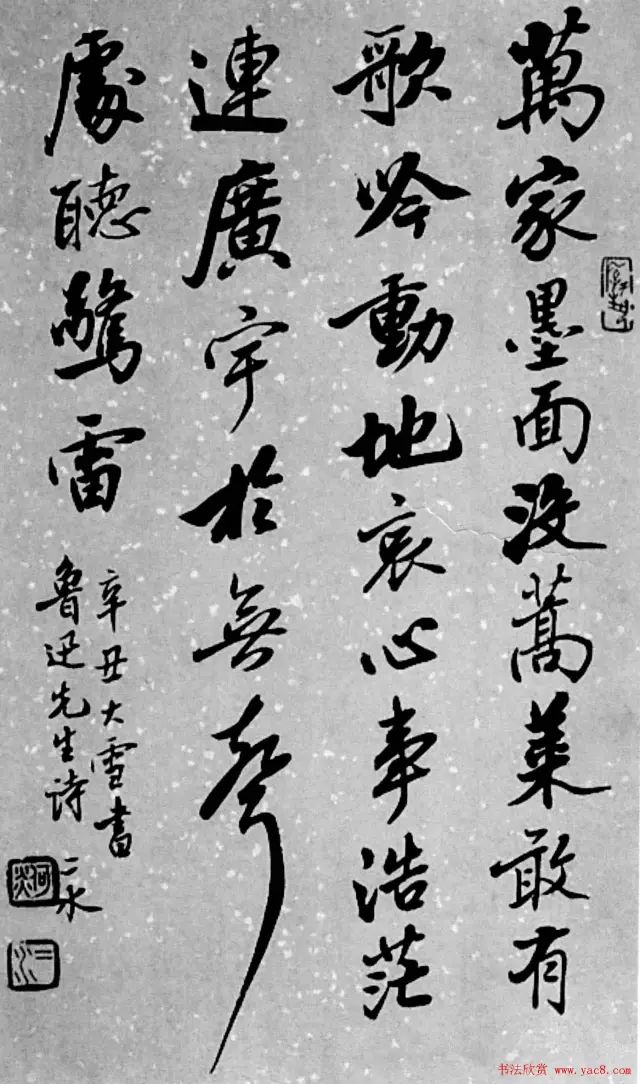 萬家墨面没蒿莱敢有
歌吟動地哀心事浩茫
連廣宇於無聲
處聽驚雷
辛丑大雪書
魯迅先生诗
书法欣赏 www.yac8.com